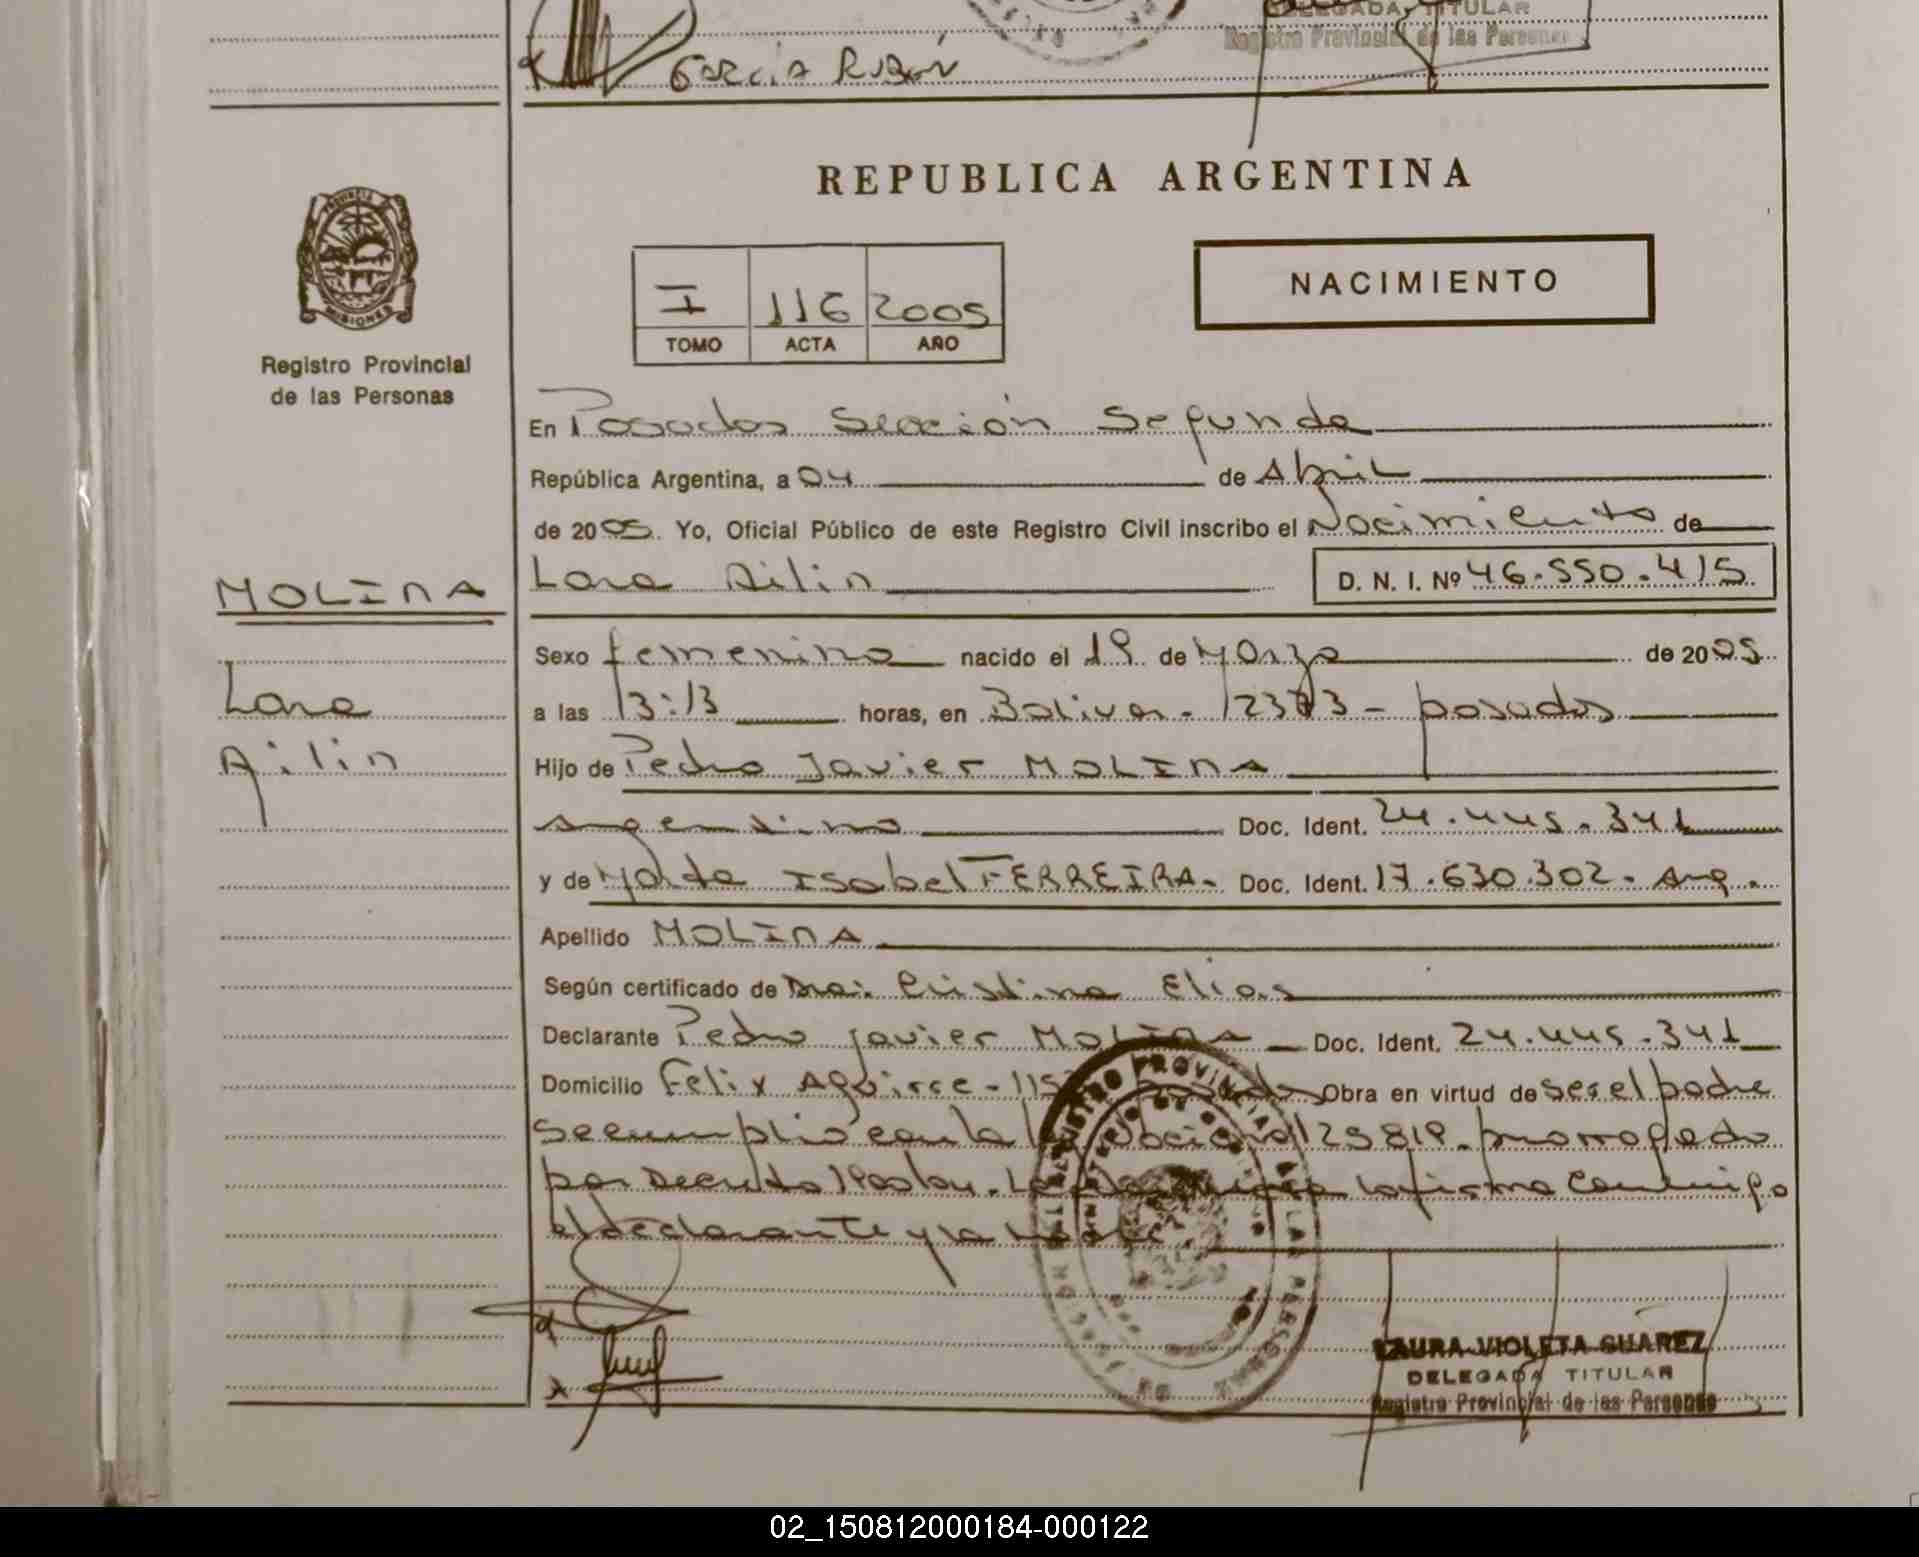 DELEGADA TITULAR
Registro Provincial de las Personas
GARCIA RUBÉN
REPUBLICA ARGENTINA
PROVINCIA DE
MISIONES
NACIMIENTO
I 116 2005
TOMO ACTA AÑO
Registro Provincial
de las Personas
En Posadas Sección Segunda
República Argentina, a 04 de Abril
de 2005. Yo, Oficial Público de este Registro Civil inscribo el Nacimiento de
MOLINA
Lara Ailin D. N. I. Nº 46.550.415
Sexo femenino nacido el 19 de Marzo de 2005
Lara
a las 13:13 horas, en Bolivar - - posadas
Ailin
Hijo de Pedro Javier MOLINA
argentino Doc. Ident. 24.445.341
y de Isabel FERREIRA - Doc. Ident. 17.630.302 - Arg.
Apellido MOLINA
Según certificado de Dra. Cristina Elias
Declarante Pedro Javier MOLINA Doc. Ident. 24.445.341
Domicilio Felix Aguirre - Obra en virtud de ser el padre
Se cumplió con la 25819 - prorrogado
por Decreto la firma Conmigo
el declarante y la Madre
LAURA VIOLETA SUAREZ
DELEGADA TITULAR
Registro Provincial de las Personas
02_150812000184-000122